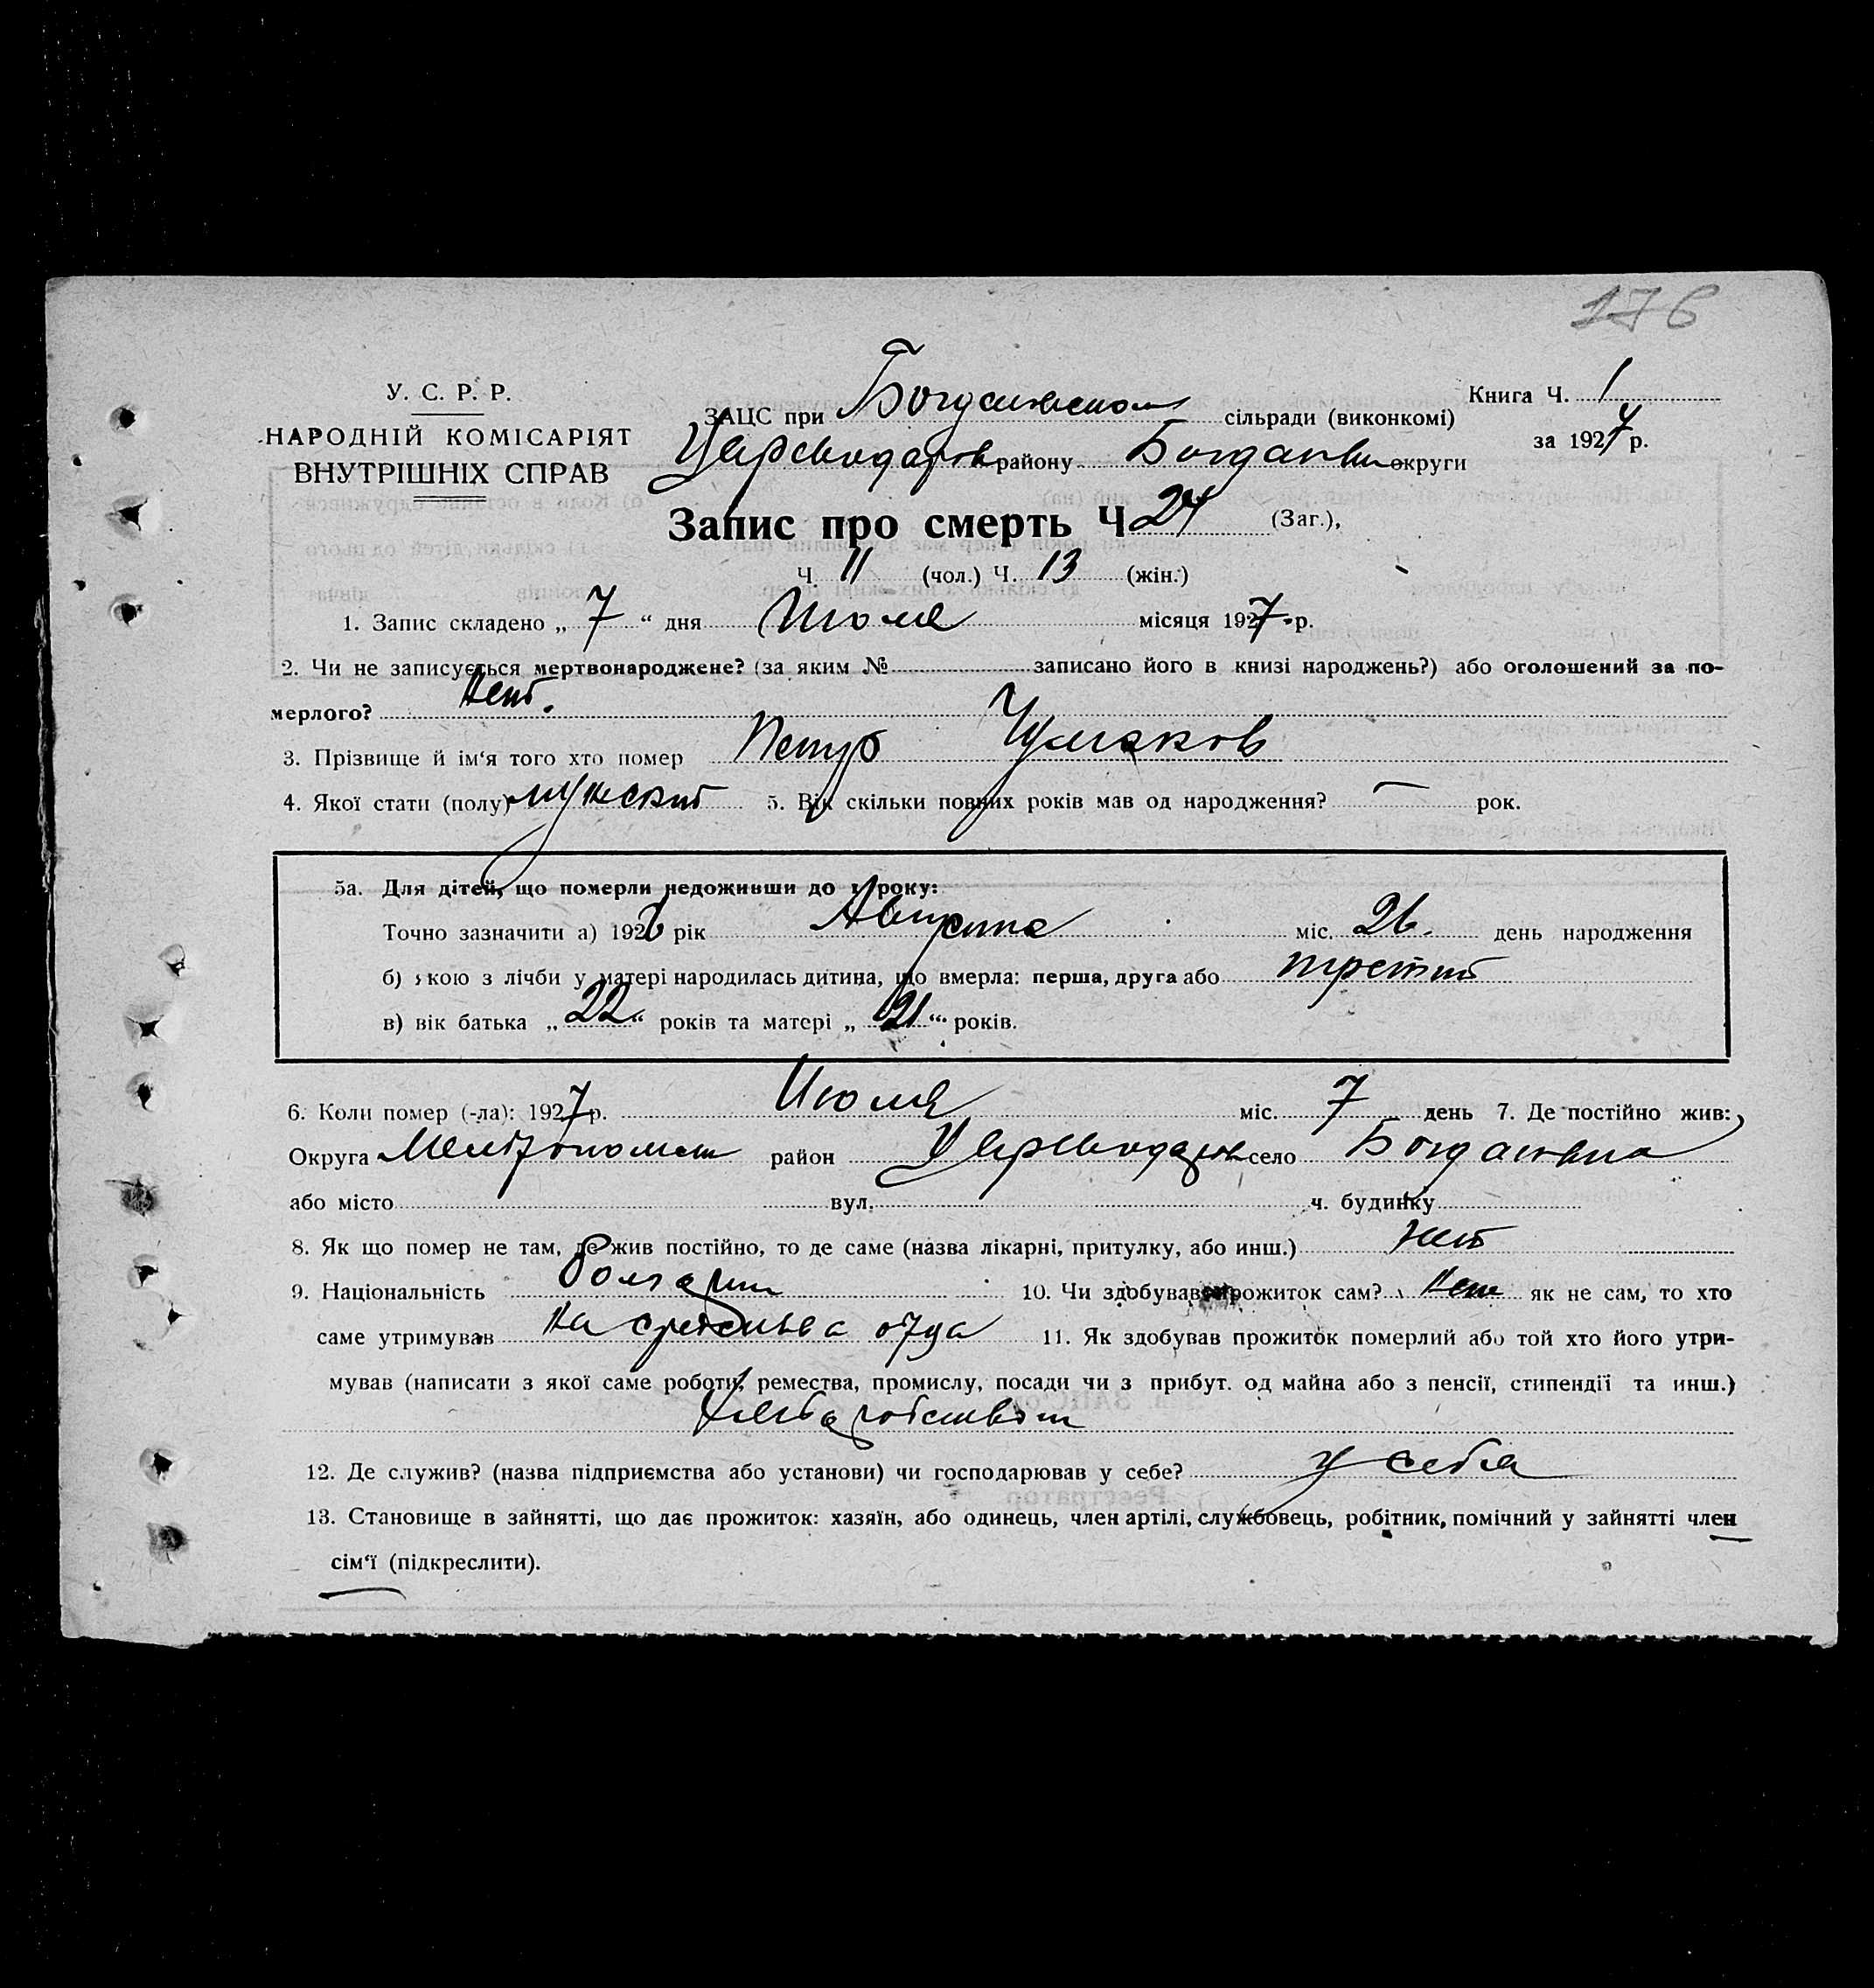 176
У. С. Р. Р.
НАРОДНІЙ КОМІСАРІЯТ
ВНУТРІШНІХ СПРАВ
ЗАЦС при Богдановском сільради (виконкомі)
Книга Ч. 1
за 1927 р.
району округи
Запис про смерть Ч 24 (Заг.),
Ч. 11 (чол.) Ч. 13 (жін.)
1. Запис складено „ 7 “ дня Июля місяця 1927 р.
2. Чи не записується мертвонароджене? (за яким № записано його в книзі народжень?) або оголошений за по-
мерлого? нет.
3. Прізвище й ім‘я того хто помер Петр
4. Якої стати (полу) мужской 5. Вік скільки повних років мав од народження? — рок.
5а. Для дітей, що померли недоживши до 1 року:
Точно зазначити а) 1926 рік Августа міс. 26. день народження
б) якою з лічби у матері народилась дитина, що вмерла: перша, друга або третий
в) вік батька „ 22 “ років та матері „ 21 “ років.
6. Коли помер (-ла): 1927 р. Июля міс. 7 день 7. Де постійно жив:
Округа район село Богдановка
або місто вул. ч. будинку
8. Як що помер не там, де жив постійно, то де саме (назва лікарні, притулку, або инш.) нет
9. Національність болгарин 10. Чи здобував прожиток сам? нет як не сам, то хто
саме утримував на средства отца 11. Як здобував прожиток померлий або той хто його утри-
мував (написати з якої саме роботи, ремества, промислу, посади чи з прибут. од майна або з пенсії, стипендії та инш.)
12. Де служив? (назва підприємства або установи) чи господарював у себе? у себя
13. Становище в зайнятті, що дає прожиток: хазяїн, або одинець, член артілі, службовець, робітник, помічний у зайнятті член
сім‘ї (підкреслити).